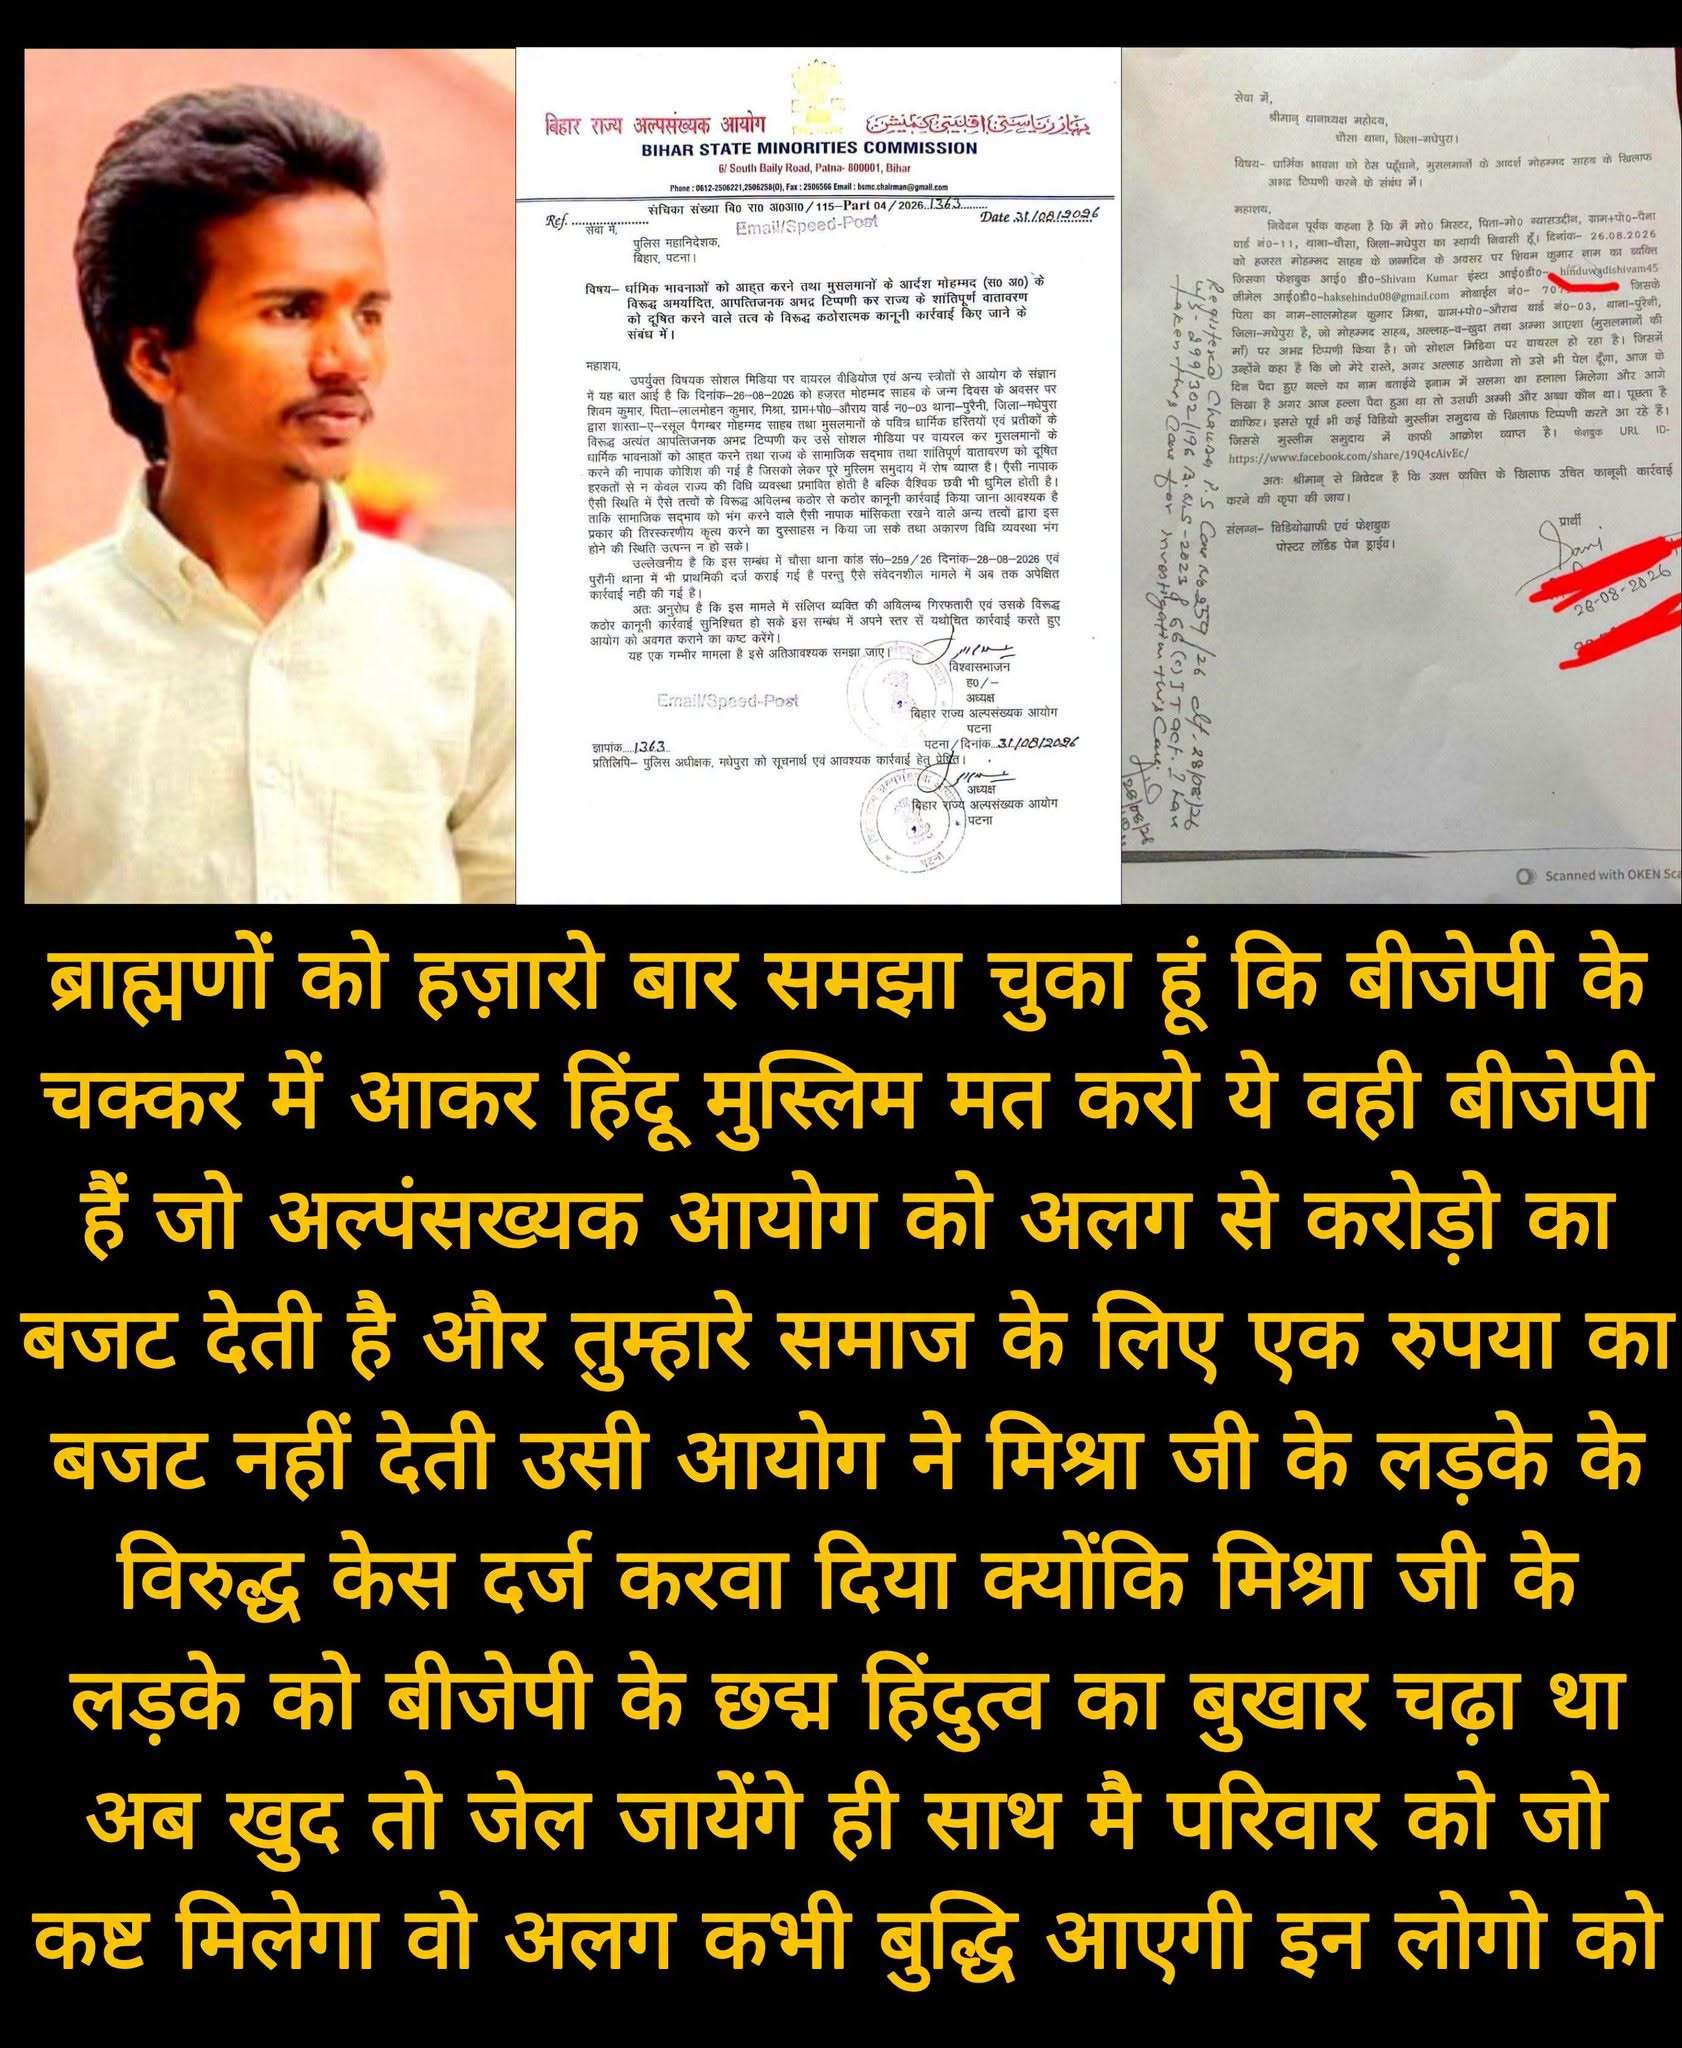 बिहार राज्य अल्पसंख्यक आयोग
بہار ریاستی اقلیتی کمیشن
BIHAR STATE MINORITIES COMMISSION
6/ South Baily Road, Patna- 800001, Bihar
Phone : 0612-2506221,2506258(O), Fax : 2506566 Email : bsmc.chairman@gmail.com
संचिका संख्या बि० रा० अ०आ० / 115-Part 04 / 2026..1363.........
Ref. ..................... Email/Speed-Post Date 31/08/2026
सेवा में,
पुलिस महानिदेशक,
बिहार, पटना।
विषय– धार्मिक भावनाओं को आहत् करने तथा मुसलमानों के आदर्श मोहम्मद (स० अ०) के
विरूद्ध अमर्यादित, आपत्तिजनक अभद्र टिप्पणी कर राज्य के शांतिपूर्ण वातावरण
को दूषित करने वाले तत्व के विरूद्ध कठोरात्मक कानूनी कार्रवाई किए जाने के
संबंध में।
महाशय,
उपर्युक्त विषयक सोशल मिडिया पर वायरल वीडियोज एवं अन्य स्त्रोतों से आयोग के संज्ञान
में यह बात आई है कि दिनांक–26-08-2026 को हजरत मोहम्मद साहब के जन्म दिवस के अवसर पर
शिवम कुमार, पिता–लालमोहन कुमार, मिश्रा, ग्राम+पो०–औराय वार्ड न०–03 थाना–पुरैनी, जिला–मधेपुरा
द्वारा शास्ता–ए–रसूल पैगम्बर मोहम्मद साहब तथा मुसलमानों के पवित्र धार्मिक हस्तियों एवं प्रतीकों के
विरूद्ध अत्यंत आपत्तिजनक अभद्र टिप्पणी कर उसे सोशल मीडिया पर वायरल कर मुसलमानों के
धार्मिक भावनाओं को आहत् करने तथा राज्य के सामाजिक सद्भाव तथा शांतिपूर्ण वातावरण को दूषित
करने की नापाक कोशिश की गई है जिसको लेकर पूरे मुस्लिम समुदाय में रोष व्याप्त है। ऐसी नापाक
हरकतों से न केवल राज्य की विधि व्यवस्था प्रभावित होती है बल्कि वैश्विक छवी भी धुमिल होती है।
ऐसी स्थिति में ऐसे तत्वों के विरूद्ध अविलम्ब कठोर से कठोर कानूनी कार्रवाई किया जाना आवश्यक है
ताकि सामाजिक सद्भाव को भंग करने वाले ऐसी नापाक मांसिकता रखने वाले अन्य तत्वों द्वारा इस
प्रकार की तिरस्करणीय कृत्य करने का दुस्साहस न किया जा सके तथा अकारण विधि व्यवस्था भंग
होने की स्थिति उत्पन्न न हो सके।
उल्लेखनीय है कि इस सम्बंध में चौसा थाना कांड सं०–259 / 26 दिनांक–28-08-2026 एवं
पुरौनी थाना में भी प्राथमिकी दर्ज कराई गई है परन्तु ऐसे संवेदनशील मामले में अब तक अपेक्षित
कार्रवाई नही की गई है।
अतः अनुरोध है कि इस मामले में संलिप्त व्यक्ति की अविलम्ब गिरफतारी एवं उसके विरूद्ध
कठोर कानूनी कार्रवाई सुनिश्चित हो सके इस सम्बंध में अपने स्तर सें यथोचित कार्रवाई करते हुए
आयोग को अवगत कराने का कष्ट करेंगे।
यह एक गम्भीर मामला है इसे अतिआवश्यक समझा जाए।
विश्वासभाजन
ह० / –
अध्यक्ष
Email/Speed-Post
बिहार राज्य अल्पसंख्यक आयोग
पटना
ज्ञापांक....1363.. पटना / दिनांक..31/08/2026
प्रतिलिपि– पुलिस अधीक्षक, मधेपुरा को सूचनार्थ एवं आवश्यक कार्रवाई हेतु प्रेषित।
अध्यक्ष
बिहार राज्य अल्पसंख्यक आयोग
पटना
सेवा में,
श्रीमान् थानाध्यक्ष महोदय,
चौसा थाना, जिला–मधेपुरा।
विषय– धार्मिक भावना को ठेस पहूँचाने, मुसलमानों के आदर्श मोहम्मद साहब के खिलाफ
अभद्र टिप्पणी करने के संबंध में।
महाशय,
निवेदन पूर्वक कहना है कि मैं मो० मिस्टर, पिता–मो० ग्यासउद्दीन, ग्राम+पो०–पैना
वार्ड नं०–11, थाना–चौसा, जिला–मधेपुरा का स्थायी निवासी हूँ। दिनांक– 26.08.2026
को हजरत मोहम्मद साहब के जन्मदिन के अवसर पर शिवम कुमार नाम का व्यक्ति
जिसका फेशबुक आई० डी०–Shivam Kumar इंस्टा आई०डी०– hinduwadishivam45
जीमेल आई०डी०–haksehindu08@gmail.com मोबाईल नं०– 70 जिसके
पिता का नाम–लालमोहन कुमार मिश्रा, ग्राम+पो०–औराय वार्ड नं०–03, थाना–पुरैनी,
जिला–मधेपुरा है, जो मोहम्मद साहब, अल्लाह–व–खुदा तथा अम्मा आएशा (मुसलमानों की
माँ) पर अभद्र टिप्पणी किया है। जो सोशल मिडिया पर वायरल हो रहा है। जिसमें
उन्होंने कहा है कि जो मेरे रास्ते, अगर अल्लाह आयेगा तो उसे भी पेल दूँगा, आज के
दिन पैदा हुए बल्ले का नाम बताईये इनाम में सलमा का हलाला मिलेगा और आगे
लिखा है अगर आज हल्ला पैदा हुआ था तो उसकी अम्मी और अब्बा कौन था। पूछता है
काफिर। इससे पूर्व भी कई विडियो मुस्लीम समुदाय के खिलाफ टिप्पणी करते आ रहे है।
जिससे मुस्लीम समुदाय में काफी आक्रोश व्याप्त है। फेशबुक URL ID-
https://www.facebook.com/share/19Q4cAivEc/
अतः श्रीमान् से निवेदन है कि उक्त व्यक्ति के खिलाफ उचित कानूनी कार्रवाई
करने की कृपा की जाय।
संलग्न– विडियोग्राफी एवं फेशबुक
पोस्टर लॉडिड पेन ड्राईव।
प्रार्थी
28-08-2026
Registered Chausa P.S Case No 259/26 dt. 28/08/26
u/s. 299/302/196 B.N.S-2023 & 66(c) IT act. I have
taken this Case for investigation this Case.
Scanned with OKEN Sca
ब्राह्मणों को हज़ारो बार समझा चुका हूं कि बीजेपी के
चक्कर में आकर हिंदू मुस्लिम मत करो ये वही बीजेपी
हैं जो अल्पंसख्यक आयोग को अलग से करोड़ो का
बजट देती है और तुम्हारे समाज के लिए एक रुपया का
बजट नहीं देती उसी आयोग ने मिश्रा जी के लड़के के
विरुद्ध केस दर्ज करवा दिया क्योंकि मिश्रा जी के
लड़के को बीजेपी के छद्म हिंदुत्व का बुखार चढ़ा था
अब खुद तो जेल जायेंगे ही साथ मै परिवार को जो
कष्ट मिलेगा वो अलग कभी बुद्धि आएगी इन लोगो को